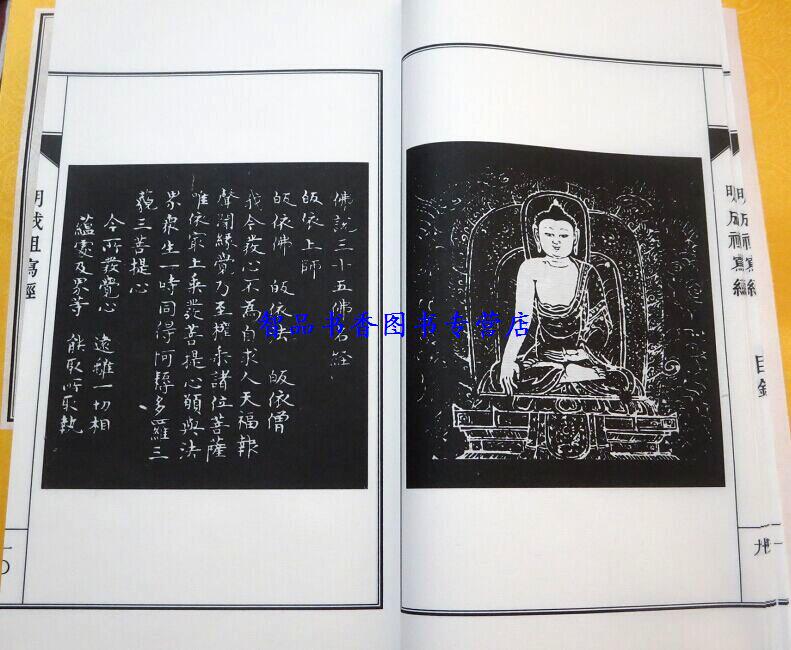 明成祖寫經
明成祖寫經
目錄
九
佛說三十五佛名經
皈依上師
皈依佛 皈依法 皈依僧
我今發心不為自求人天福報
聲聞緣覺乃至權乘諸位菩薩
唯依最上乘發菩提心願與法
界眾生一時同得阿耨多羅三
藐三菩提心
今所發覺心 遠離一切相
蘊處及界等 能取所取執
明成祖寫經
一〇
智品书香图书专营店